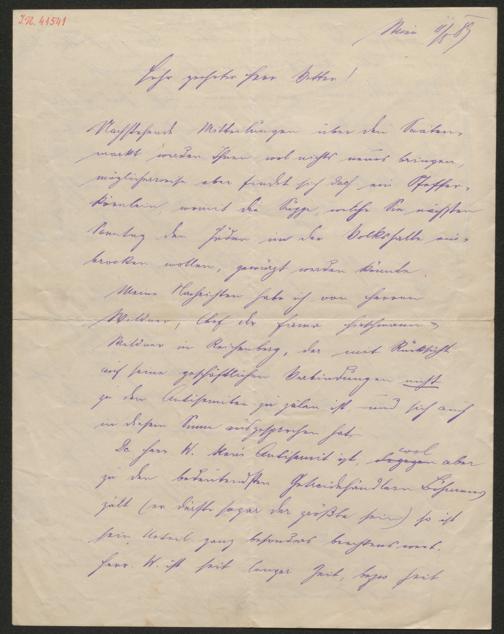 I.N. 41541
Wien
Sehr geehrter Herr Vetter!
Nachstehende Mitteilungen über den Saaten-
markt werden Ihnen wol nichts neues bringen,
möglicherweise aber findet sich doch ein Pfeffer-
körnlein, womit die Suppe, welche Sie nächsten
Sonntag den Juden in der Volkshalle ein-
brocken wollen, gewürzt werden könnte.
Meine Nachrichten habe ich von Herrn
Chef der Firma
in Reichenberg, der mit Rücksicht
auf seine geschäftlichen Verbindungen nicht
zu den Antisemiten zu zälen ist und sich auch
in diesem Sinne ausgesprochen hat.
Da Herr W. kein Antisemit ist, wol aber
zu den bedeutendsten Getreidehändlern Böhmens
zält (er dürfte sogar der größte sein) so ist
sein Urteil ganz besonders beachtenswert.
Herr W. ist seit langer Zeit, seit